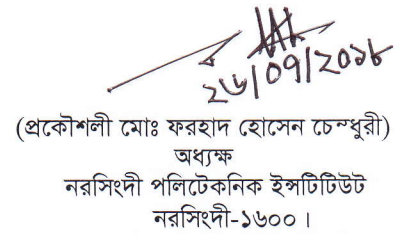 ২৬/০৭/২০১৮
(প্রকৌশলী মোঃ ফরহাদ হোসেন চেন্ধুরী)
অধ্যক্ষ
নরসিংদী পলিটেকনিক ইন্সটিটিউট
নরসিংদী-১৬০০।